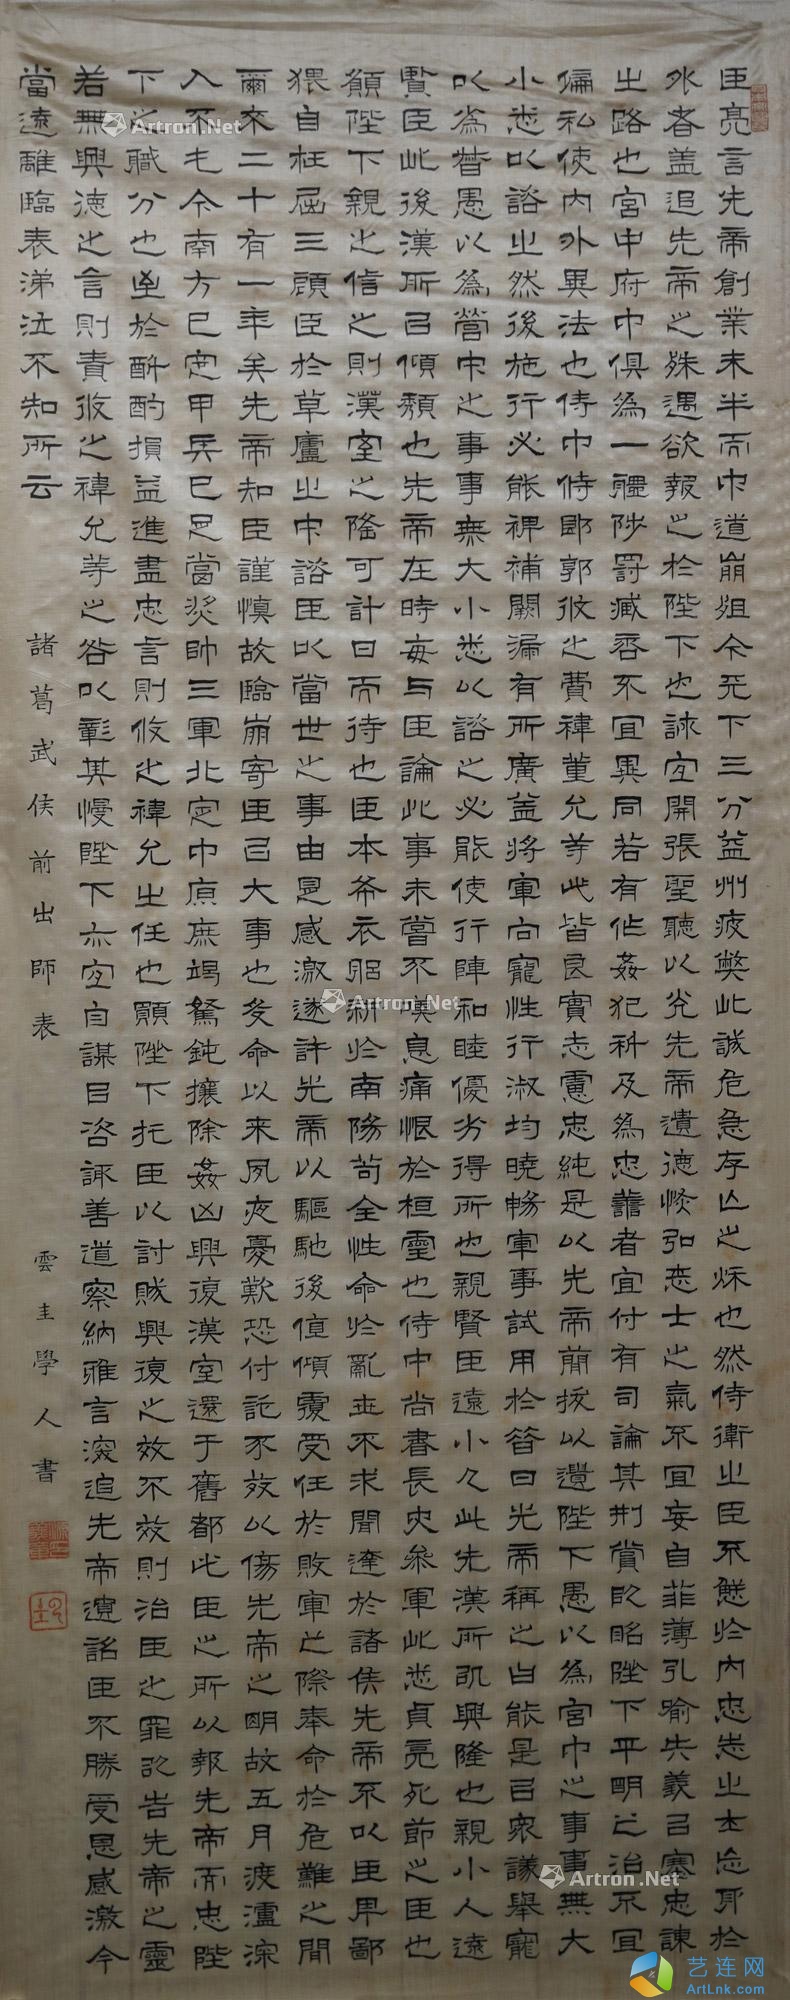 臣亮言先帝創業未半而中道崩殂今天下三分益州疲弊此誠危急存亡之秋也然侍衛之臣不懈於內忠志之士忘身於
外者蓋追先帝之殊遇欲報之於陛下也誠宜開張聖聽以光先帝遺德恢弘志士之氣不宜妄自菲薄引喻失義以塞忠諫
之路也宮中府中俱為一體陟罰臧否不宜異同若有作姦犯科及為忠善者宜付有司論其刑賞以昭陛下平明之治不宜
偏私使內外異法也侍中侍郎郭攸之費禕董允等此皆良實志慮忠純是以先帝簡拔以遺陛下愚以為宮中之事事無大
小悉以諮之然後施行必能裨補闕漏有所廣益將軍向寵性行淑均曉暢軍事試用於昔日先帝稱之曰能是以眾議舉寵
以為督愚以為營中之事事無大小悉以諮之必能使行陣和睦優劣得所也親賢臣遠小人此先漢所以興隆也親小人遠
賢臣此後漢所以傾頹也先帝在時每与臣論此事未嘗不嘆息痛恨於桓靈也侍中尚書長史參軍此悉貞亮死節之臣也
願陛下親之信之則漢室之隆可計日而待也臣本布衣躬耕於南陽苟全性命於亂世不求聞達於諸侯先帝不以臣卑鄙
猥自枉屈三顧臣於草廬之中諮臣以當世之事由是感激遂許先帝以驅馳後值傾覆受任於敗軍之際奉命於危難之間
爾來二十有一年矣先帝知臣謹慎故臨崩寄臣以大事也受命以來夙夜憂歎恐付託不效以傷先帝之明故五月渡瀘深
入不毛今南方已定甲兵已足當獎帥三軍北定中原庶竭駑鈍攘除姦凶興復漢室還于舊都此臣之所以報先帝而忠陛
下之職分也至於斟酌損益進盡忠言則攸之禕允之任也願陛下托臣以討賊興復之效不效則治臣之罪以告先帝之靈
若無興德之言則責攸之禕允等之咎以彰其慢陛下亦宜自謀以咨諏善道察納雅言深追先帝遺詔臣不勝受恩感激今
當遠離臨表涕泣不知所云
諸葛武侯前出師表
雲圭學人書
Artron.Net
Artron.Net
Artron.Net
艺连网
ArtLnk.com